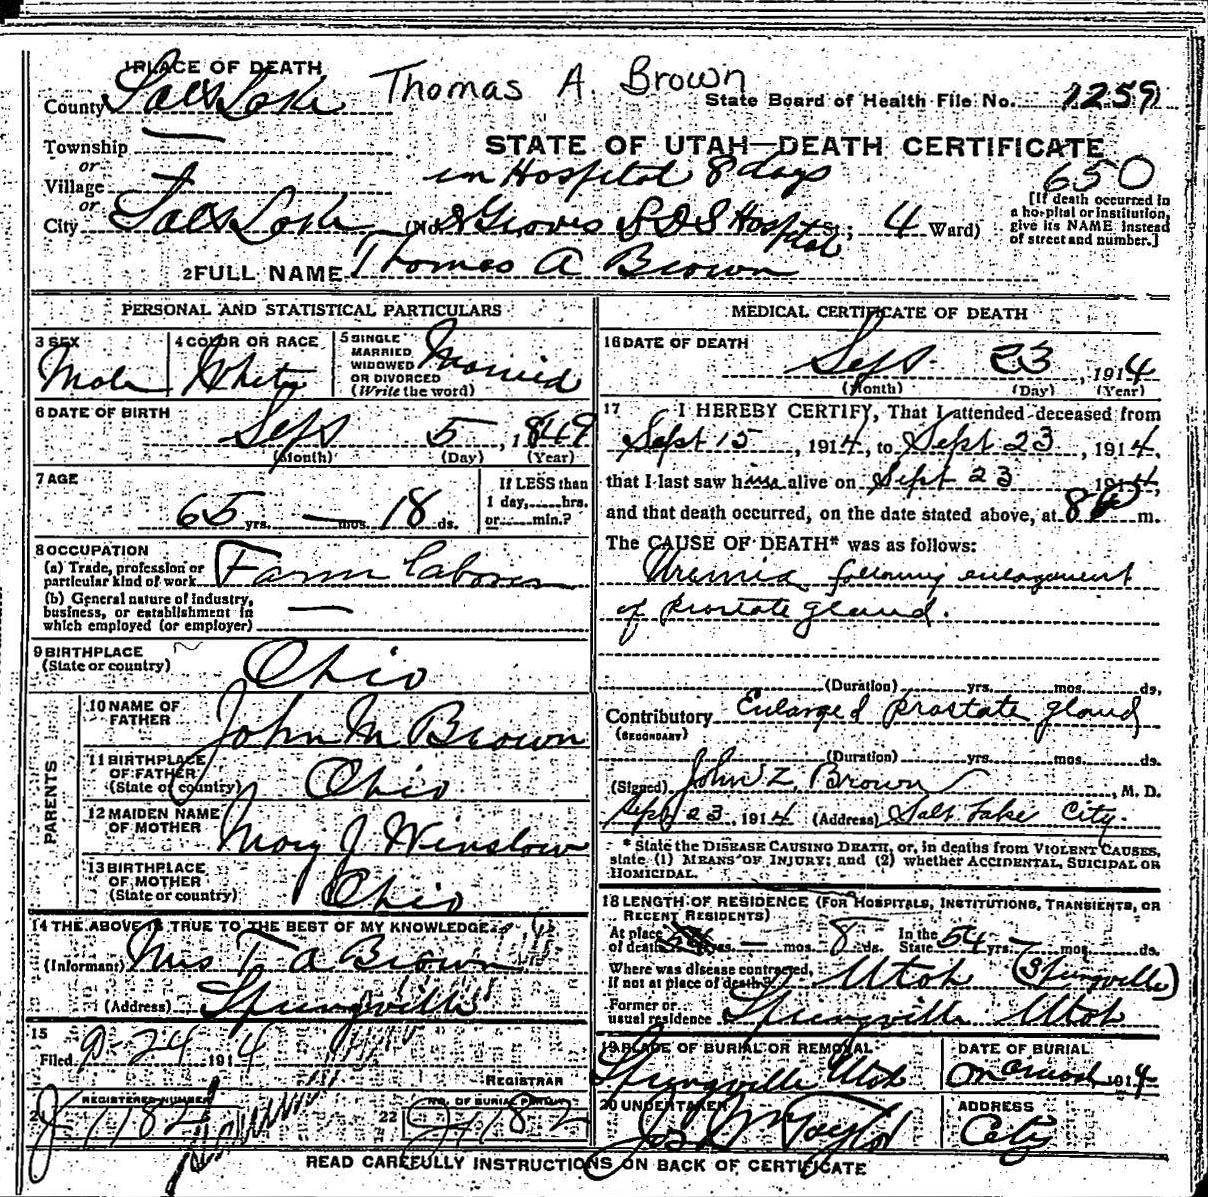 1 PLACE OF DEATH
Thomas A. Brown
County Salt Lake
State Board of Health File No. 1259
Township —
STATE OF UTAH—DEATH CERTIFICATE
or
Village
in Hospital 8 days
650
or
City Salt Lake (No. Dr Groves L D S Hospital St.; 4 Ward)
[If death occurred in a hospital or institution, give its NAME instead of street and number.]
2 FULL NAME Thomas A Brown
PERSONAL AND STATISTICAL PARTICULARS
3 SEX
Male
4 COLOR OR RACE
White
5 SINGLE MARRIED WIDOWED OR DIVORCED (Write the word)
Married
6 DATE OF BIRTH
Sept 5, 1849
(Month) (Day) (Year)
7 AGE
65 yrs. — mos. 18 ds.
If LESS than 1 day,.....hrs. or.....min.?
8 OCCUPATION
(a) Trade, profession or particular kind of work Farm Laborer
(b) General nature of industry, business, or establishment in which employed (or employer) —
9 BIRTHPLACE
(State or country) Ohio
PARENTS
10 NAME OF FATHER John M Brown
11 BIRTHPLACE OF FATHER (State or country) Ohio
12 MAIDEN NAME OF MOTHER Mary J Winslow
13 BIRTHPLACE OF MOTHER (State or country) Ohio
14 THE ABOVE IS TRUE TO THE BEST OF MY KNOWLEDGE
(Informant) Mrs T A Brown
(Address) Springville
15
Filed 9-24 1914
REGISTRAR
21 REGISTERED NUMBER J 1782
22 NO. OF BURIAL PERMIT J 1782
MEDICAL CERTIFICATE OF DEATH
16 DATE OF DEATH
Sept. 23, 1914
(Month) (Day) (Year)
17 I HEREBY CERTIFY, That I attended deceased from
Sept 15, 1914, to Sept 23, 1914,
that I last saw him alive on Sept 23 1914,
and that death occurred, on the date stated above, at 8 m.
The CAUSE OF DEATH* was as follows:
Uremia following enlargement
of prostate gland.
(Duration) yrs. mos. ds.
Contributory Enlarged prostate gland
(SECONDARY)
(Duration) yrs. mos. ds.
(Signed) John Z. Brown, M. D.
Sept 23, 1914 (Address) Salt Lake City.
* State the DISEASE CAUSING DEATH, or, in deaths from VIOLENT CAUSES, state (1) MEANS OF INJURY; and (2) whether ACCIDENTAL, SUICIDAL OR HOMICIDAL.
18 LENGTH OF RESIDENCE (FOR HOSPITALS, INSTITUTIONS, TRANSIENTS, OR RECENT RESIDENTS)
At place of death yrs. — mos. 8 ds. In the State 54 yrs. 7 mos. ds.
Where was disease contracted, If not at place of death? Utah (Springville)
Former or usual residence Springville Utah
19 PLACE OF BURIAL OR REMOVAL
Springville Utah
DATE OF BURIAL
1914
20 UNDERTAKER
Jos Wm Taylor
ADDRESS
City
READ CAREFULLY INSTRUCTIONS ON BACK OF CERTIFICATE